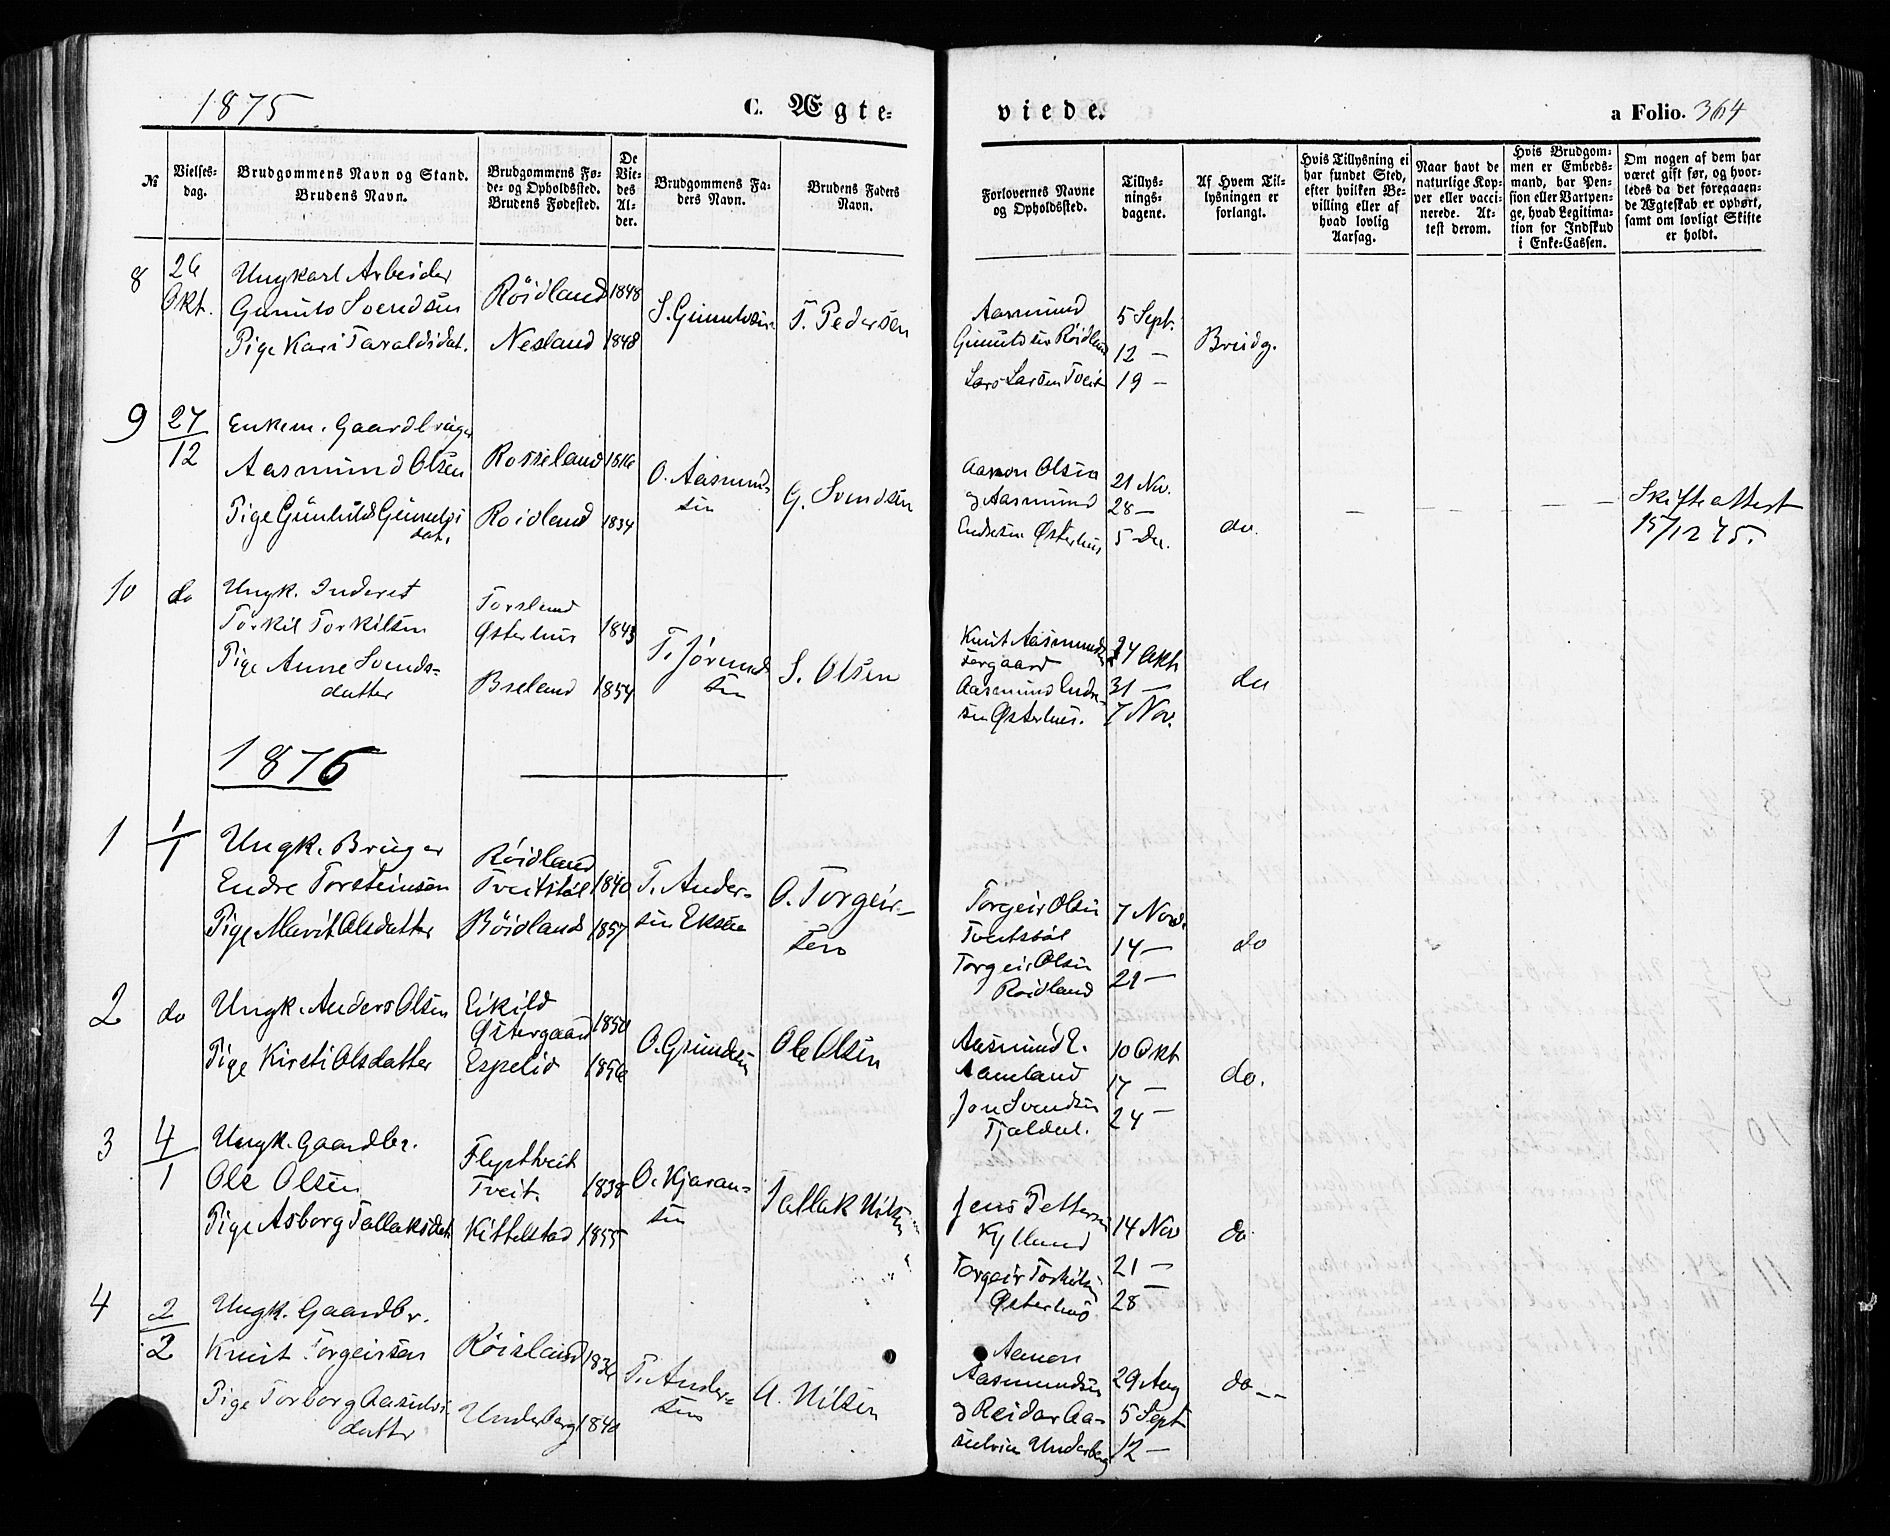 1875
C. Ægte-
viede.
a Folio. 364
№
Vielses-
dag.
Brudgommens Navn og Stand.
Brudens Navn.
Brudgommens Fø-
de- og Opholdssted.
Brudens Fødested.
De
Vie-
des
Al-
der.
Brudgommens Fa-
ders Navn.
Brudens Faders
Navn.
Forlovernes Navne
og Opholdssted.
Tillys-
nings-
dagene.
Af Hvem Til-
lysningen er
forlangt.
Hvis Tillysning ei
har fundet Sted,
efter hvilken Be-
villing eller af
hvad lovlig
Aarsag.
Naar havt de
naturlige Kop-
per eller vacci-
nerede. At-
test derom.
Hvis Brudgom-
men er Embeds-
mand, har Pen-
sion eller Vartpen-
ge, hvad Legitima-
tion for Indskud
i Enke-Cassen.
Om nogen af dem har
været gift før, og hvor-
ledes da det foregaaen-
de Ægteskab er ophørt,
samt om lovligt Skifte
er holdt.
8
26
Okt.
Ungkarl Arbeider
Gunulv Svendsen
Pige Kari Taraldsdat.
Röidland 1848
Nesland 1848
S. Gunulvsen
T. Pedersen
Aasmund
Gunulvsen Röidland
Lars Larsen Tveit
5 Sept.
12 —
19 —
Brudg.
9
27
12
Enkem. Gaardbruger
Aasmund Olsen
Pige Gunhild Gunulvs
dat.
Rosseland 1816
Roidland 1834
O. Aasmund-
sen
G. Svendsen
Aamon Olsen
og Aasmund
Endresen Østerhus
21 Nov.
28 —
5 Dec.
do.
— — — —
Skifteattest
15/12 75.
10
do
Ungk. Inderst
Torkil Torkilsen
Pige Anne Svends-
datter
Torsland
Østerhus 1843
Breland 1854
T. Jörund
sen
S. Olsen
Knut Aasmundsen
Aasmund Endre-
sen Østerhus.
24 Okt.
31 —
7 Nov.
do
1876
1
1
1
Ungk. Bruger
Endre Torsteinsen
Pige Marit Olsdatter
Röidland
Tveitstöl 1840
Röidland 1857
T. Ander-
sen
O. Torgeir-
sen
Torgeir Olsen
Tveitstöl
Torgeir Olsen
Roidland
7 Novb.
14 —
21 —
do
2
do
Ungk. Anders Olsen
Pige Kirsti Olsdatter
Eikild
Østergaard 1850
Espelid 1856
O. Gundersen
Ole Olsen
Aasmund E.
Aamland
Jon Svendsen
Tjaldal.
10 Okt
17 —
24 —
do.
3
4
1
Ungk. Gaardbr.
Ole Olsen
Pige Asborg Tallaksdat.
Flysttveit
Tveit. 1838
Kittelstad 1855
O. Kjaran-
sen
Tallak Nilsen
Jens Pettersen
Kylland
Torgeir Torkilsen
Østerhus
14 Nov
21 —
28 —
do
4
2
2
Ungk. Gaardbr.
Knut Torgeirsen
Pige Torborg Aasulvs
datter
Röisland 1836
Underberg 1840
T. Ander-
sen
A. Nilsen
Aamon
Aasmundsen
og Reidar Aa-
sulvsen Underberg
29 Aug
5 Sept
12 —
do --